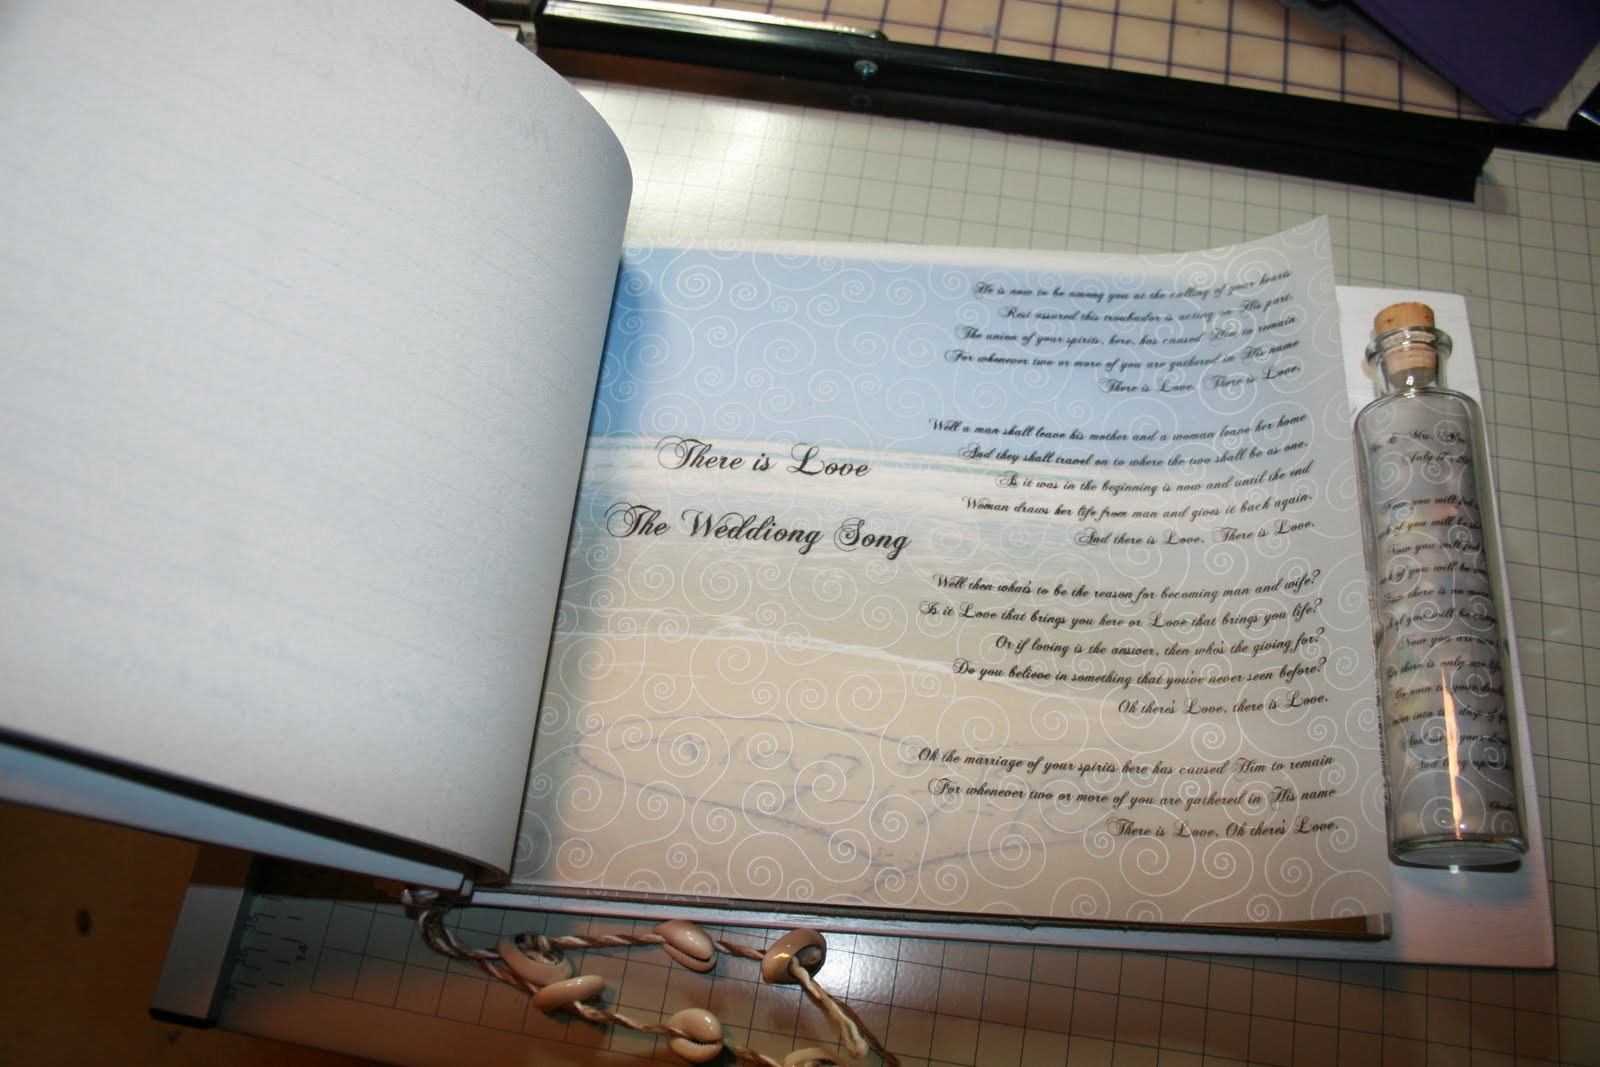 There is Love
The Weddiong Song
He is now to be among you at the calling of your hearts
Rest assured this troubador is acting on His part.
The union of your spirits, here, has caused Him to remain
For whenever two or more of you are gathered in His name
There is Love. There is Love.
Well a man shall leave his mother and a woman leave her home
And they shall travel on to where the two shall be as one.
As it was in the beginning is now and until the end
Woman draws her life from man and gives it back again.
And there is Love. There is Love.
Well then what's to be the reason for becoming man and wife?
Is it Love that brings you here or Love that brings you life?
Or if loving is the answer, then who's the giving for?
Do you believe in something that you've never seen before?
Oh there's Love, there is Love.
Oh the marriage of your spirits here has caused Him to remain
For whenever two or more of you are gathered in His name
There is Love. Oh there's Love.
& Mrs.
July 17
Now you will
of you will be
Now you will feel
of you will be
there is no more
of you will be
Now you are
there is only one life
Go now to your
into the days of
And
And long upon